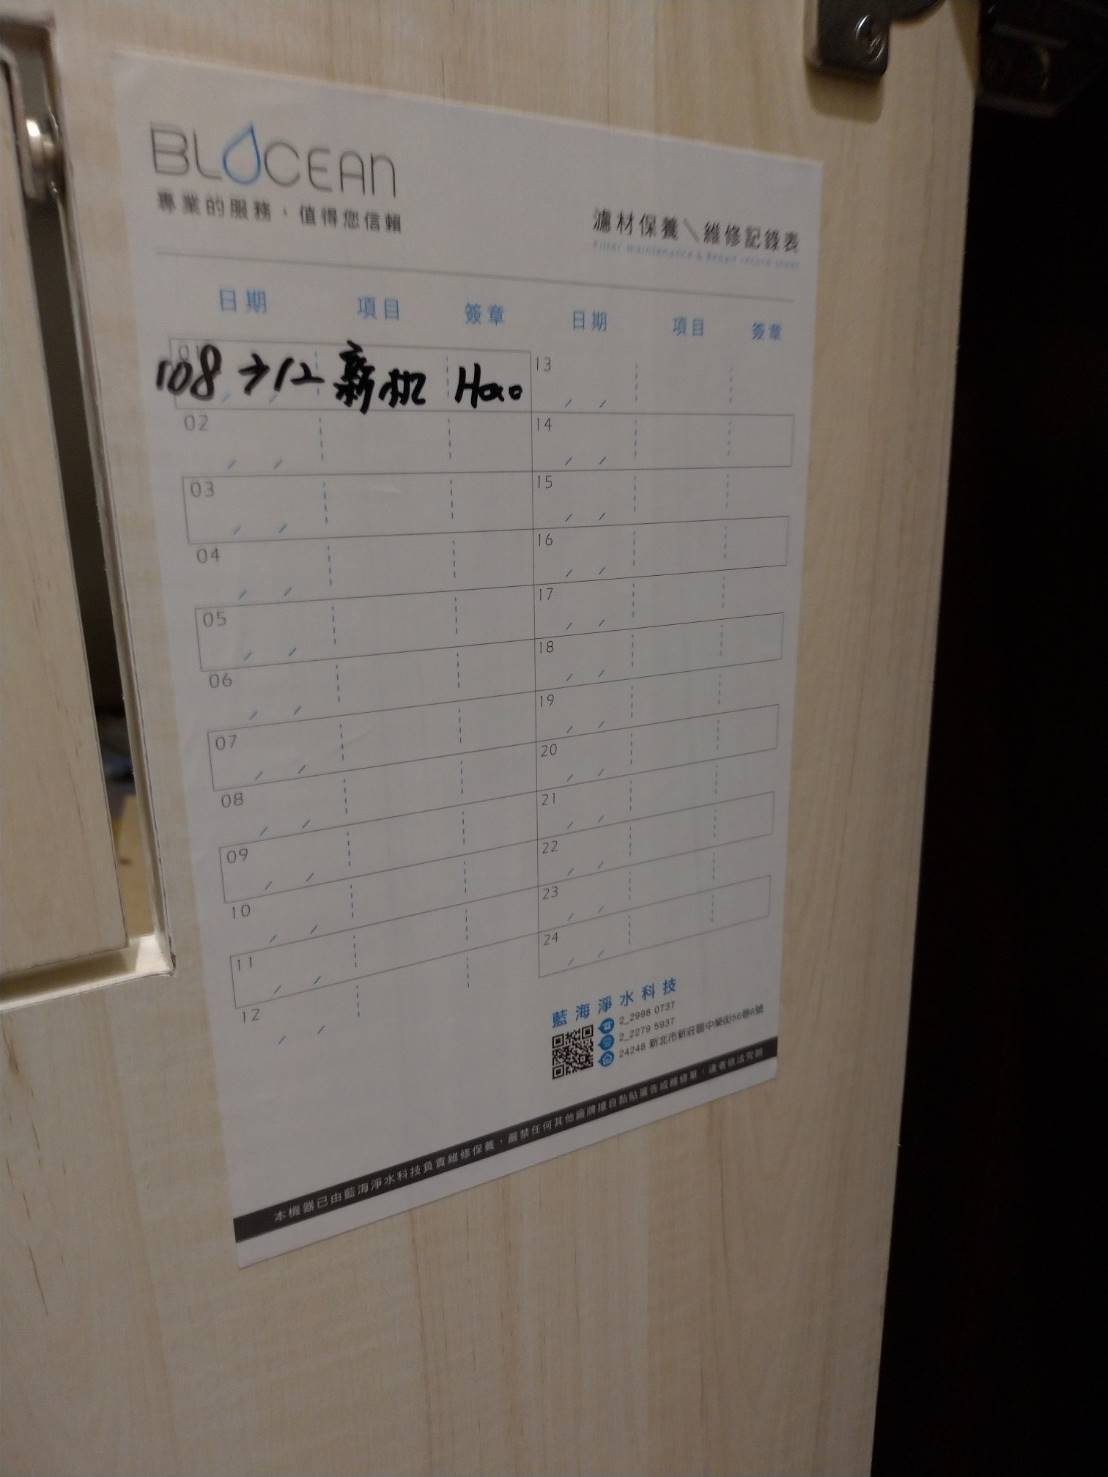 BLOCEAN
專業的服務，值得您信賴
濾材保養＼維修記錄表
Filter Maintenance & Repair record sheet
日期 項目 簽章 日期 項目 簽章
01 108 7/12 新机 Hao 13 / /
02 / / 14 / /
03 / / 15 / /
04 / / 16 / /
05 / / 17 / /
06 / / 18 / /
07 / / 19 / /
08 / / 20 / /
09 / / 21 / /
10 / / 22 / /
11 / / 23 / /
12 / / 24 / /
藍海淨水科技
2_2998 0737
2_2279 5937
24248 新北市新莊區中榮街56巷6號
本機器已由藍海淨水科技負責維修保養，嚴禁任何其他廠牌擅自黏貼廣告或維修單，違者依法究辦